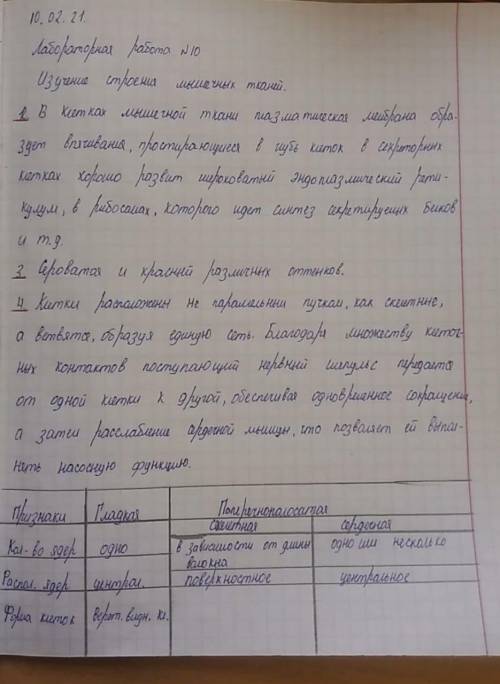 10.02.21.
Лабораторная работа №10
Изучение строения мышечных тканей.
2. В клетках мышечной ткани плазматическая мембрана обра-
зует впячивания, простирающиеся в глубь клеток в секреторных
клетках хорошо развит шероховатый эндоплазмический рети-
кулум, в рибосомах, которого идет синтез секретируемых белков
и т.д.
3. Сероватая и красный различных оттенков.
4. Клетки расположены не параллельны пучкам, как скелетные,
а ветвятся, образуя единую сеть. Благодаря множеству клеточ-
ных контактов поступающий нервный импульс передается
от одной клетки к другой, обеспечивая одновременное сокращение,
а затем расслабление сердечной мышцы, что позволяет ей выпол-
нять насосную функцию.
Признаки Гладкая Поперечнополосатая
скелетная сердечная
Кол-во ядер одно в зависимости от длины волокна одно или несколько
Распол. ядер централ. поверхностное центральное
Форма клеток Верет. видн. кл.